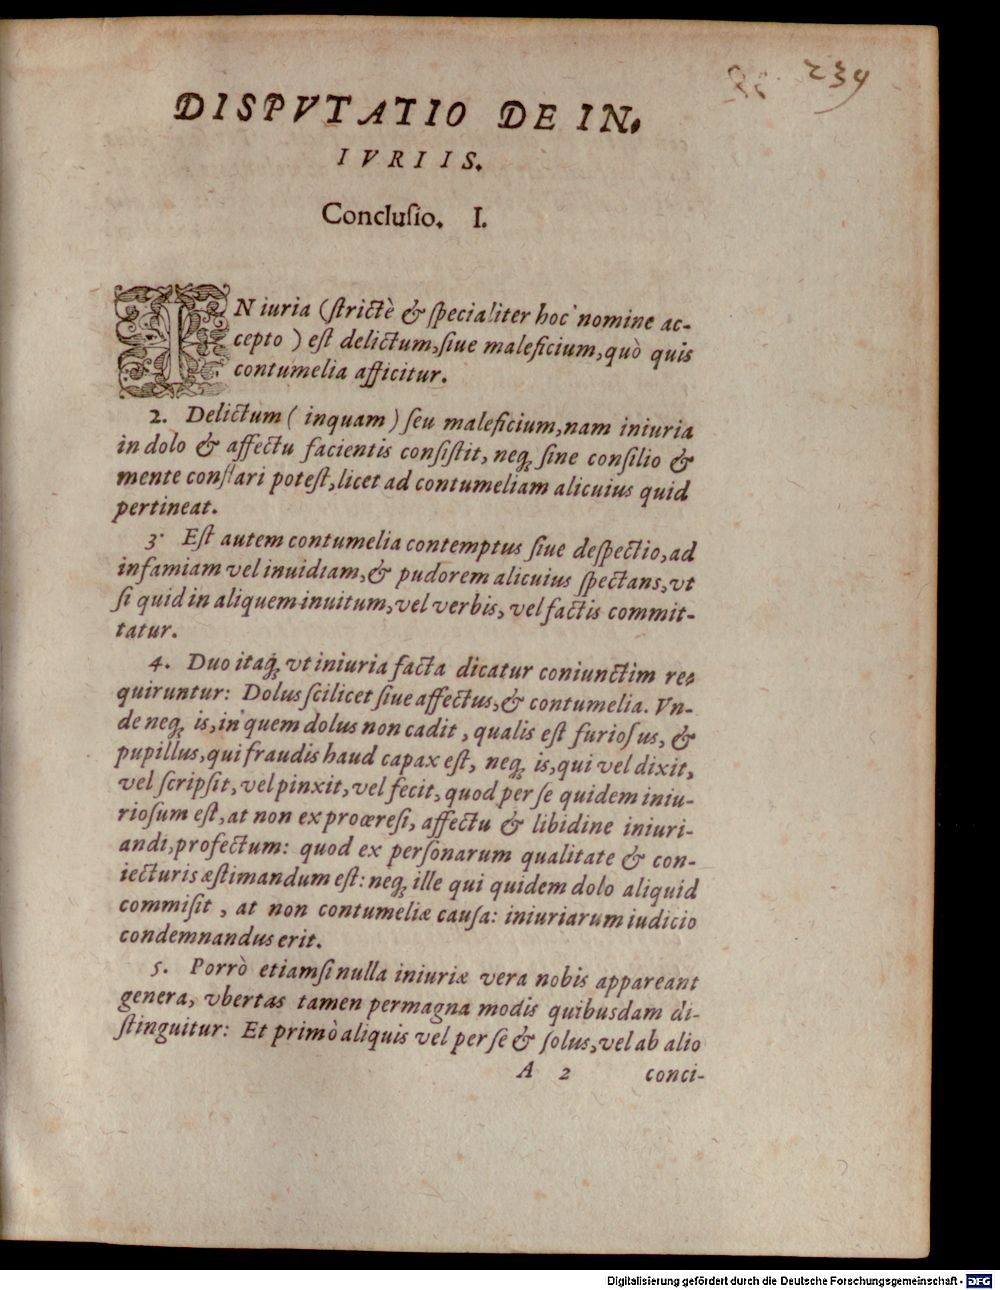 239
DISPVTATIO DE IN.
IVRIIS.
Conclusio. I.
IN iuria (strictè & specialiter hoc nomine ac-
cepto ) est delictum, siue maleficium, quò quis
contumelia afficitur.
2. Delictum ( inquam ) seu maleficium, nam iniuria
in dolo & affectu facientis consistit, neq; sine consilio &
mente conflari potest, licet ad contumeliam alicuius quid
pertineat.
3. Est autem contumelia contemptus siue despectio, ad
infamiam vel inuidiam, & pudorem alicuius spectans, vt
si quid in aliquem inuitum, vel verbis, vel factis commit-
tatur.
4. Duo itaq; vt iniuria facta dicatur coniunctim re-
quiruntur: Dolus scilicet siue affectus, & contumelia. Vn-
de neq; is, in quem dolus non cadit, qualis est furiosus, &
pupillus, qui fraudis haud capax est, neq; is, qui vel dixit,
vel scripsit, vel pinxit, vel fecit, quod per se quidem iniu-
riosum est, at non ex proæresi, affectu & libidine iniuri-
andi, profectum: quod ex personarum qualitate & con-
iecturis æstimandum est: neq; ille qui quidem dolo aliquid
commisit , at non contumeliæ causa: iniuriarum iudicio
condemnandus erit.
5. Porrò etiamsi nulla iniuriæ vera nobis appareant
genera, vbertas tamen permagna modis quibusdam di-
stinguitur: Et primò aliquis vel per se & solus, vel ab alio
A 2 conci-
Digitalisierung gefördert durch die Deutsche Forschungsgemeinschaft - DFG